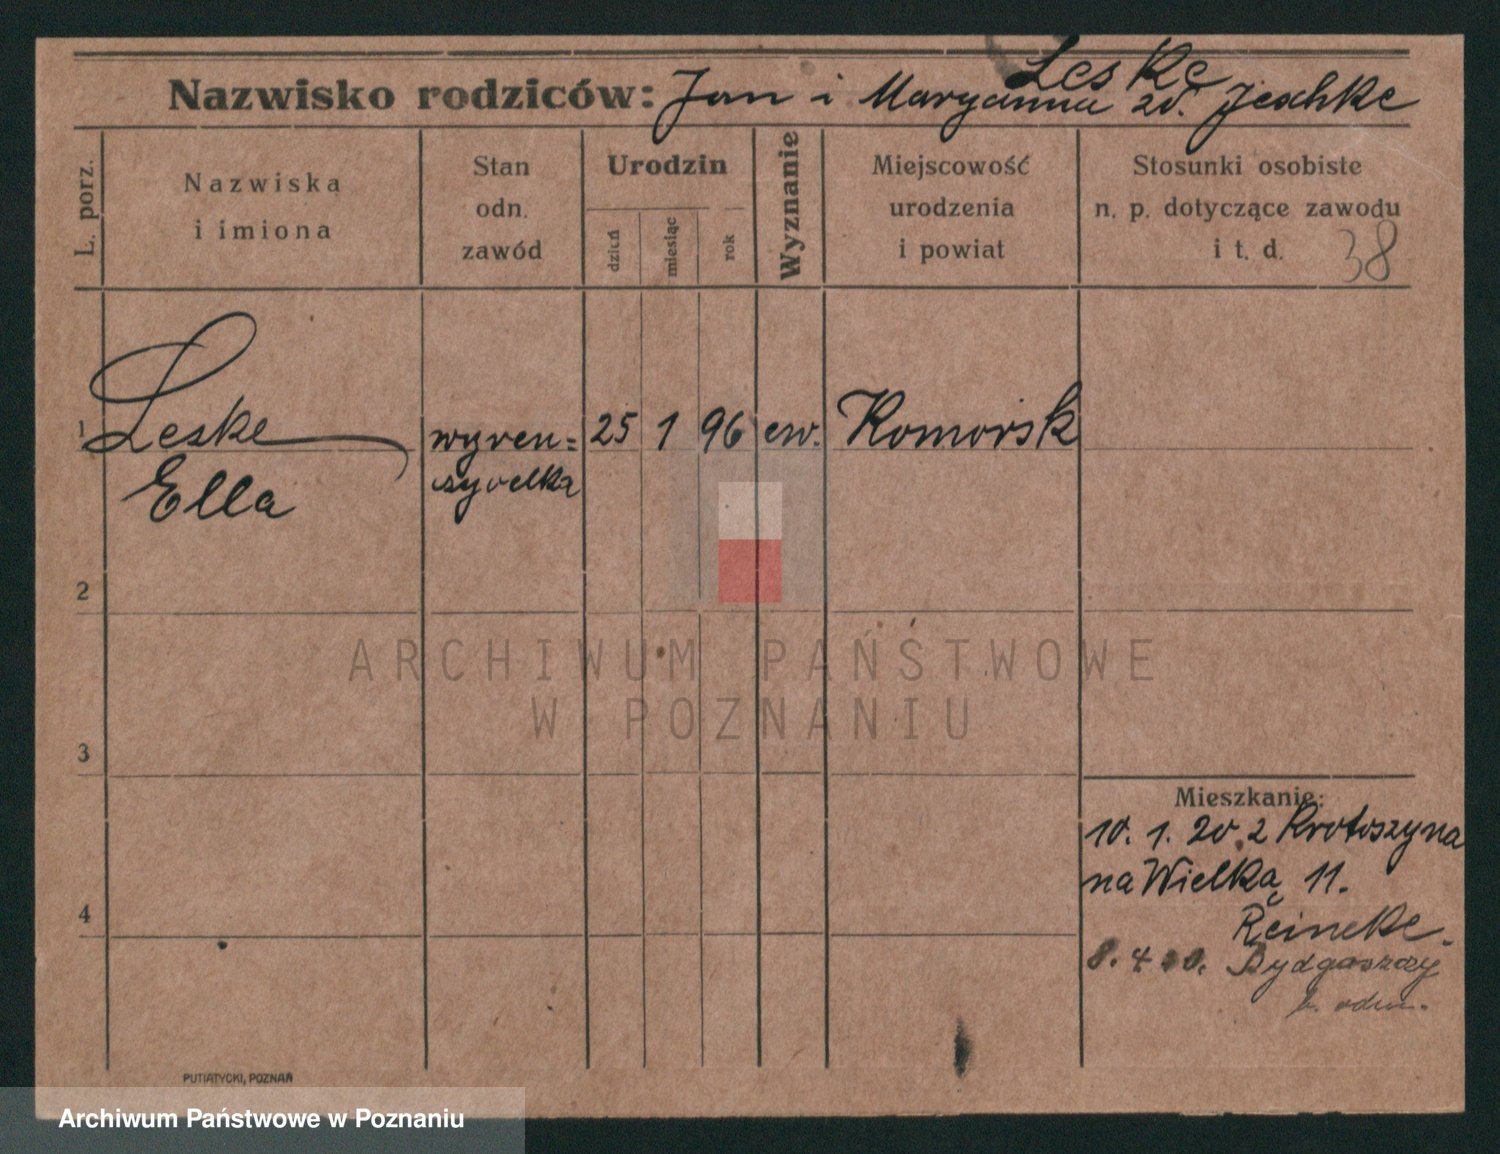 Leske
Nazwisko rodziców: Jan i Maryanna zd. Jeschke
L. porz.
Nazwiska
i imiona
Stan
odn.
zawód
Urodzin
dzień
miesiąc
rok
Wyznanie
Miejscowość
urodzenia
i powiat
Stosunki osobiste
n. p. dotyczące zawodu
i t. d.
38
1
Leske
Ella
25 1 96 ew. Komorsk
2
3
4
Mieszkanie:
10. 1. 20 z Krotoszyna
na Wielką 11.
Reineke.
8. 4 20. Bydgoszcz
PUTIATYCKI, POZNAŃ
ARCHIWUM PAŃSTWOWE
W POZNANIU
Archiwum Państwowe w Poznaniu